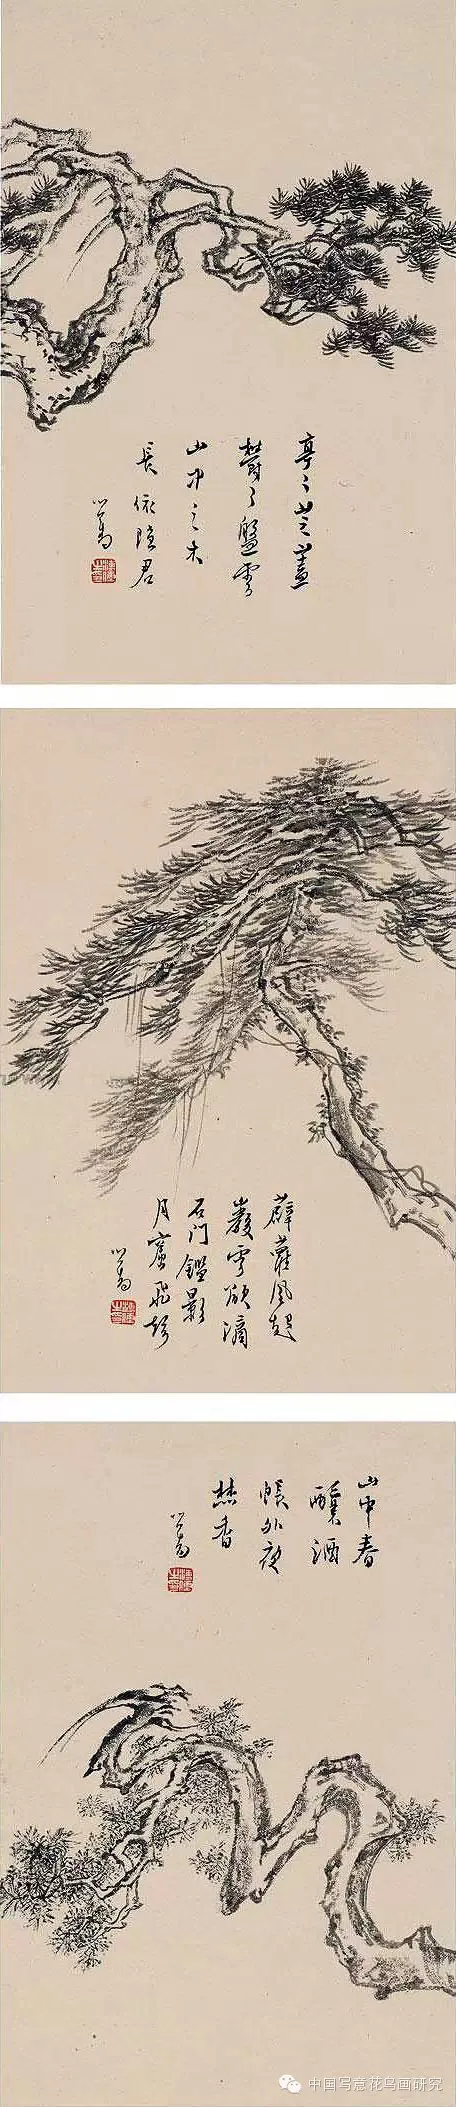 亭〻芝蓋
鬱〻盤雲
山中之木
長依隱君
心畬
薜蘿風起
巖雲欲滴
石門鑑影
月窗飛
心畬
山中春
釀酒
帳外夜
焚香
心畬
中国写意花鸟画研究